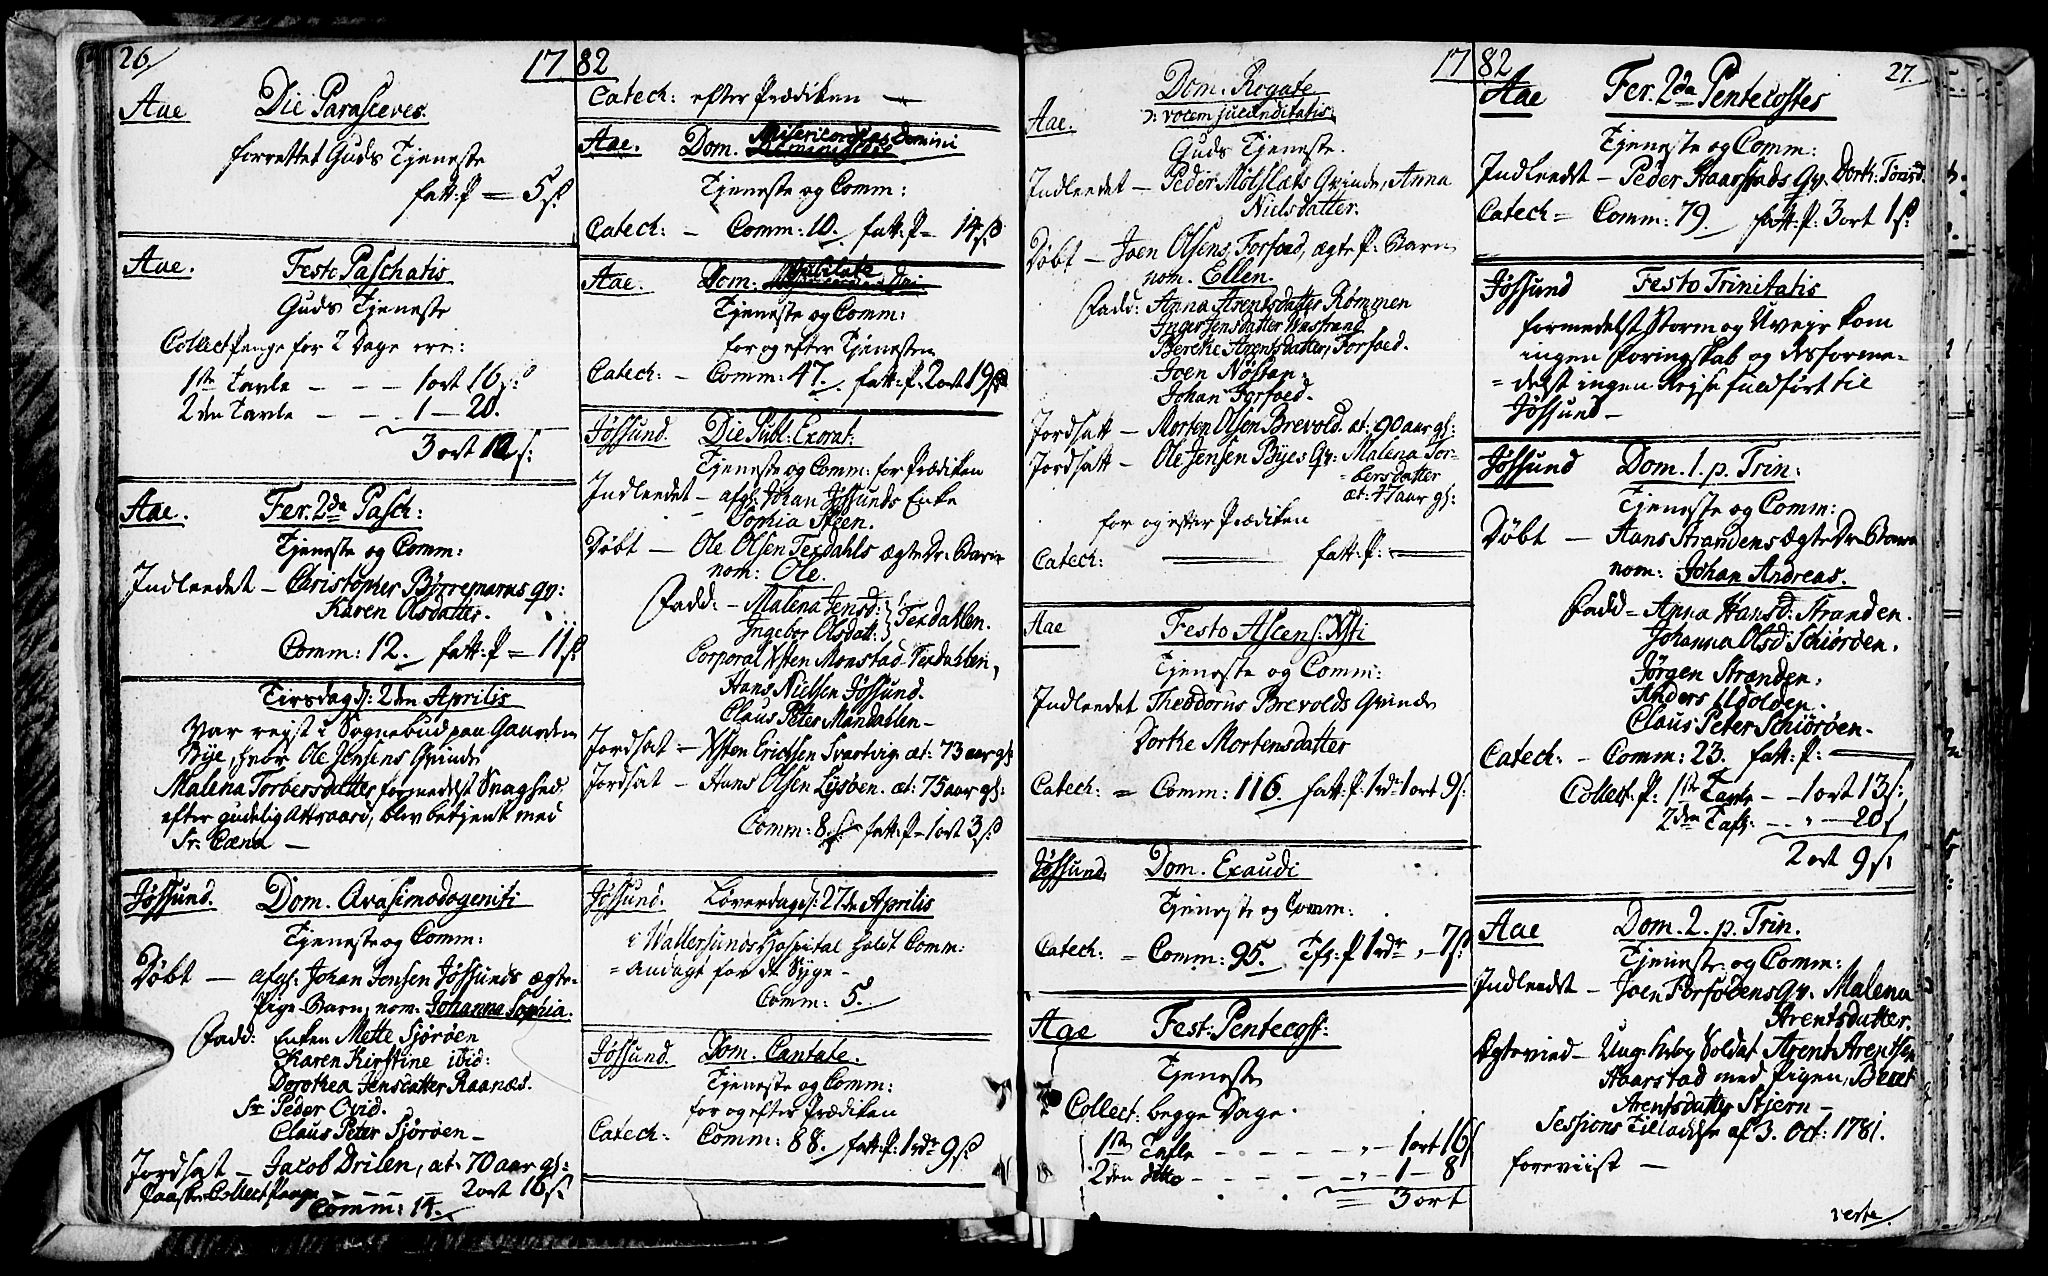 26.
17 82
Aae Die Parasceves.
forrettet Guds Tjeneste
fatt: P = 5 s:
Aae. Festo Paschatis
Guds Tjeneste
Collect Penge for 2 Dage
1ste Tavle - - - 1 ort 16 s:
2den Tavle - - - 1 - 20.
3 ort 12 s:
Aae. Fer. 2da Pasch:
Tjeneste og Comm:
Indleedet - Christopher Børremarus qv:
Karen Olsdatter.
Comm: 12. fatt: P = 11 s:
Tirsdag d: 2den Aprilis
var rejst i Sognebud paa Gaarden
Bye, hvor Ole Jensens Qvinde
Malena Torbersdatter formedelst Svaghed
efter gudelig Attraaed, blev betjent med
Sr: Cæna -
Jøssund. Dom. Qvasimodogeniti
Tjeneste og Comm:
Døbt - afg: Johan Jensen Jøssunds ægte-
Pige-Barn, nom. Johanna Sophia.
Fadd: Enken Mette Sjørøen
Karen Kirstine ibid:
Dorothea Jensdatter Raanæs.
Sr. Peder Ovid.
Claus Peter Sjørøen -
Jordsat - Jacob Drilen, æt: 70 aar gl:
Paaske Collect Penge - - - - 2 ort 16 s:
Comm: 14.
Catech: efter Prædiken -
Aae. Dom. Misericordias Domini
Tjeneste og Comm:
Catech: - Comm: 10. fatt: P = 14 s:
Aae. Dom. Jubilate
Tjeneste og Comm:
for og efter Tjenesten
Catech: - Comm: 47. fatt: P: 2 ort 19 s:
Jøssund. Die Publ: Exorat:
Tjeneste og Comm: for Prædiken
Indleedet - afg: Johan Jøssunds Enke
Sophia Steen.
Døbt - Ole Olsen Terdahls ægte Dr: Barn
nom: Ole.
Fadd: - Malena Jensd: } Terdahlen.
Ingebor Olsdatt: }
Corporal Østen Monstad-Terdahlen,
Hans Nielsen Jøssund.
Claus Peter Mandahlen -
Jordsat - Østen Erichsen Svartvig æt: 73 aar gl:
Jordsat - Hans Olsen Lysøen. æt: 75 aar gl:
Comm: 8. fatt: P = 1 ort 3 s:
Jøssund. Løverdag d: 27de Aprilis
i Wallersunds Hospital holdt Comm:
= andagt for de Syge -
Comm: 5.
Jøssund. Dom. Cantate.
Tjeneste og Comm:
for og efter Prædiken
Catech: Comm: 88. fatt: P: 1 rdr 9 s:
17 82
27.
Aae. Dom. Rogate
ɔ: vocem jucunditatis.
Guds Tjeneste.
Indleedet - Peder Mølslæts Qvinde, Anna
Nielsdatter.
Døbt - Joen Olsens, Forfoed, ægte P: Barn
nom. Ellen.
Fadd: Anna Arentsdatter Rømmen
Inger Jensdatter Wastrand
Berethe Arentsdatter, Forfoed.
Joen Nøstan.
Johan Forfoed.
Jordsatt - Morten Olsen Brevold. æt: 90 aar gl:
Jordsatt - Ole Jensen Byes Qv: Malena Tor-
= bersdatter
æt: 47 aar gl:
for og efter Prædiken
Catech: - fatt: P: -
Aae Festo Ascens: Xsti
Tjeneste og Comm:
Indleedet Theodorus Brevolds Qvinde
Dorthe Mortensdatter
Catech: = Comm: 116. fatt: P: 1 rdr 1 ort 9 s:
Jøssund, Dom. Exaudi
Tjeneste og Comm:
Catech: = Comm: 95. Tfl: P 1 rdr „ - 7 s:
Aae Fest: Pentecost:
Tjeneste
Collect: begge Dage.
1ste Tafle - - - - „ - 1 ort 16 s
2den ditto - - - - „ - 1 - 8
3 ort
Aae Fer. 2da Pentecostes
Tjeneste og Comm:
Indleedet - Peder Haarstads Qv. Dorth: Tomsd.
Catech = Comm: 79. fatt: P: 3 ort 1 s:
Jøssund Festo Trinitatis
formedelst Storm og Uvejr kom
ingen foringskab og desforme-
= delst ingen Rejse fuldført til
Jøssund -
Jøssund Dom. 1. p. Trin:
Tjeneste og Comm:
Døbt - Hans Strandens ægte Dr Barn
nom: Johan Andreas.
Fadd = Anna Hansd: Stranden.
Johanna Olsd: Schiørøen.
Jørgen Stranden.
Anders Udolden.
Claus Peter Schiørøen.
Catech: - Comm: 23. fatt: P: -
Collect: P: 1ste Tavle - - 1 ort 13 s:
2den Tafl: - - „ - 20 s
2 ort 9 s:
Aae Dom. 2. p. Trin.
Tjeneste og Comm:
Indleedt - Joen Forsøens Qv. Malena
Arentsdatter.
Ægtevied - Ung Soldat Arent Arentsen
Haarstad med Pigen, Beret
Arentsdatter Stjern -
Sessions Tilladelse af 3. Oct: 1781.
foreviist -
verte